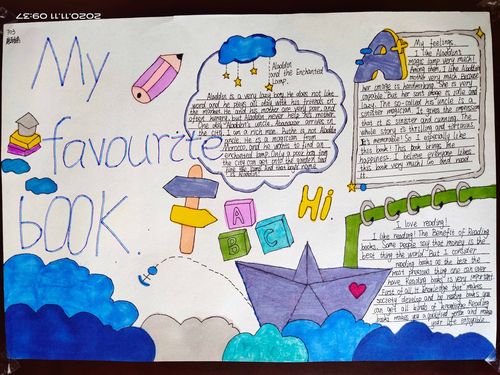 2020.11.11 09:37
703
My
favourite
BOOK.
: Aladdin
and the Enchanted
Lamp.
Aladdin is a very lazy boy. He does not like
work and he plays all day with his friends in
the market. He and his mother are very poor, and
often hungry, but Aladdin never help his mother.
One day, Aladdin's uncle, Abanazar arrives in
the city. I am a rich man. But he is not Aladdin
uncle. He is a magician from
Morocco, and he wants to find an
enchanted lamp. Only a poor boy from
the city can get into the garden and
find the lamp. And that boy's name
is Aladdin.
My feelings
I like Aladdin's
magic lamp very much!
Among them, I like Aladdin's
mother very much. Because
her image is hardworking. She is very
capable. But her son image is idle and
lazy. The so-called his uncle is a
sinister magician. It gives the impression
that it is sinister and cunning. The
whole story is thrilling and tortuous.
It's memorable! So I especially like
this book! This book brings me
happiness. I believe everyone likes
this book very much! Go and read
it.
A+
A
B
C
Hi.
I love reading!
I like reading! The Benefits of Reading
books. Some people say that money is the
best thing the world. But I consider
reading books as the best the
most precious thing one can ever
have. Reading books is very important.
First of all, it knowledge that makes
society develop and by reading books you
can get all kinds of knowledge. Reading
books makes you a qualified person and make
your life enjoyable.